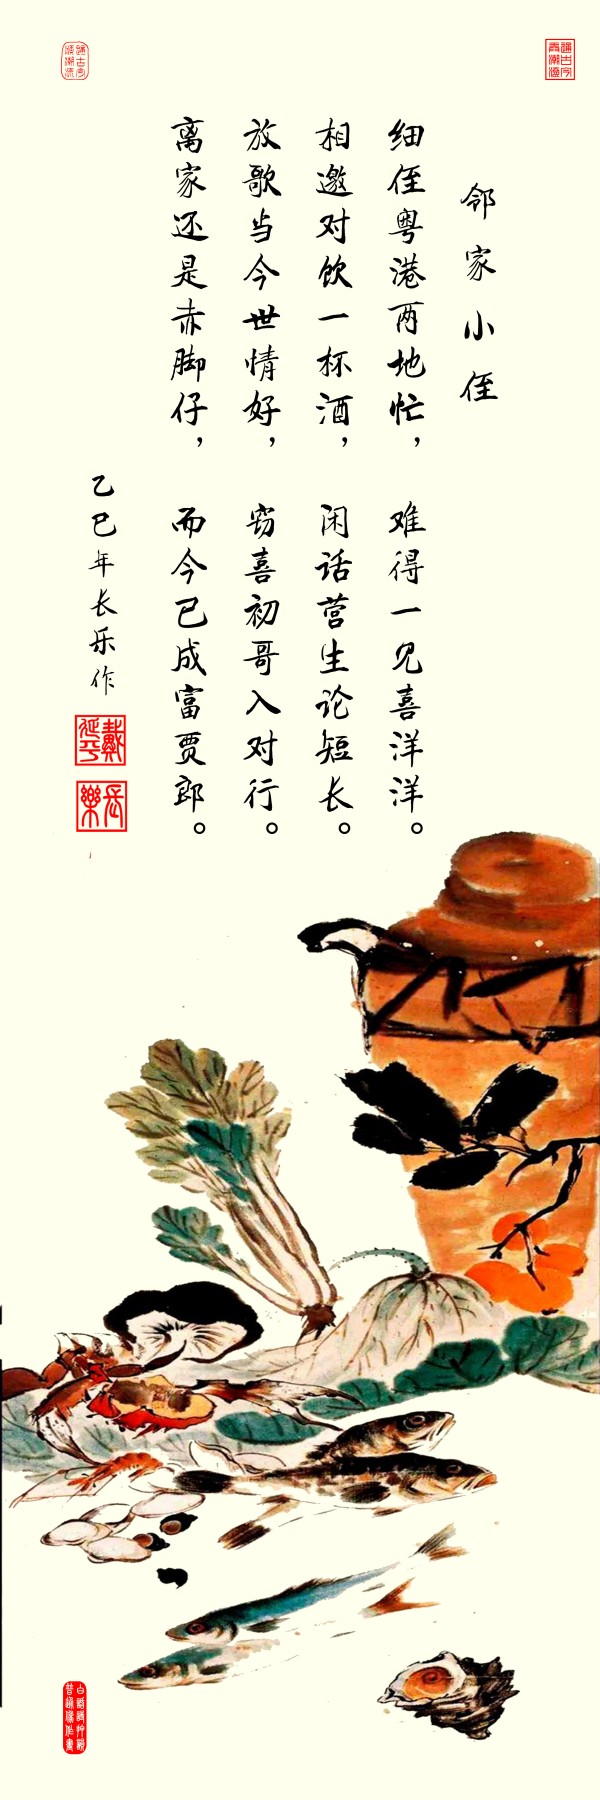 邻家小侄
细侄粤港两地忙，难得一见喜洋洋。
相邀对饮一杯酒，闲话营生论短长。
放歌当今世情好，窃喜初哥入对行。
离家还是赤脚仔，而今已成富贾郎。
乙巳年长乐作
戴延平
长樂